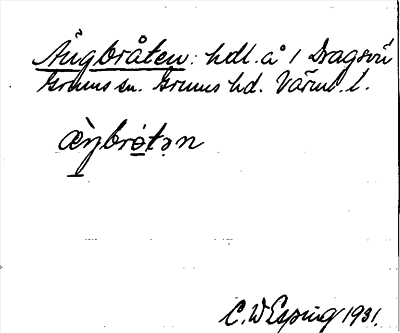 Ängbråten: hdl. å 1 Dragsvi
Grums sn. Grums hd. Värml. l.
æ̀ŋbrotən
C. W Esping 1931.